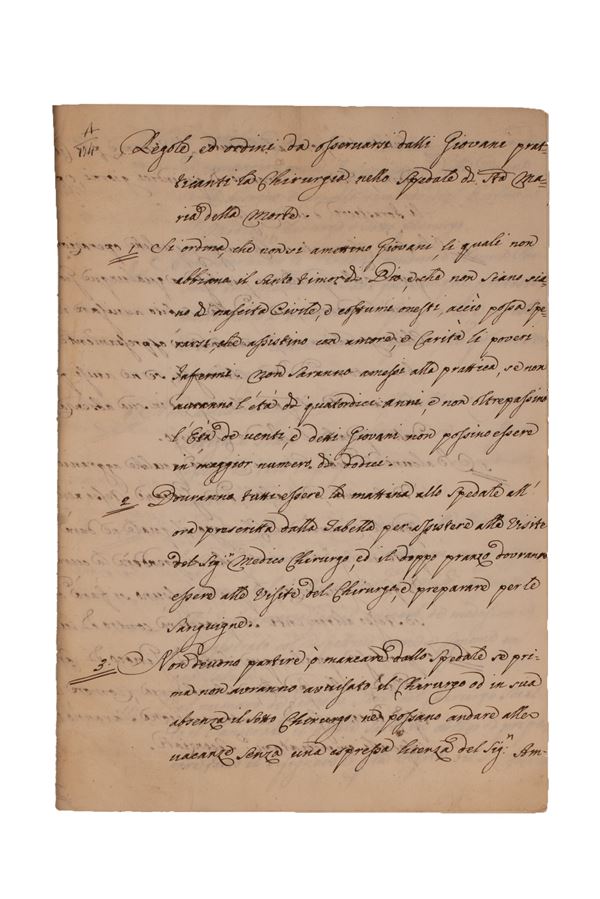 A
Regole, ed ordini da osservarsi dalli Giovani prat-
ticanti la Chirurgia nello Spedale di Sta Ma-
ria della Morte.
1. Si ordina, che non si amettino Giovani, li quali non
abbiano il Santo timor di Dio, e che non siano sia-
no di nascita Civile, e costumi onesti, acciò possa spe-
rarsi che assistino con amore e Carità li poveri
Infermi. Non saranno amessi alla prattica, se non
avranno l'età di quatordici anni, e non oltrepassino
l'Età de venti, e detti Giovani non possino essere
in maggior numero di dodici.
2. Dovranno tutti essere la mattina allo Spedale all'
ora prescritta dalla Tabella per assistere alla Visite
del Sigr. Medico Chirurgo, ed il doppo pranzo dovranno
essere alle Visite del Chirurgo e preparare per le
Sanguigne.
3. Non devono partire ò mancare dallo Spedale se pri-
ma non avranno avvisato il Chirurgo od in sua
absenza il sotto Chirurgo: ne possano andare alle
vacanze senza una espressa licenza del Sigr. Am-